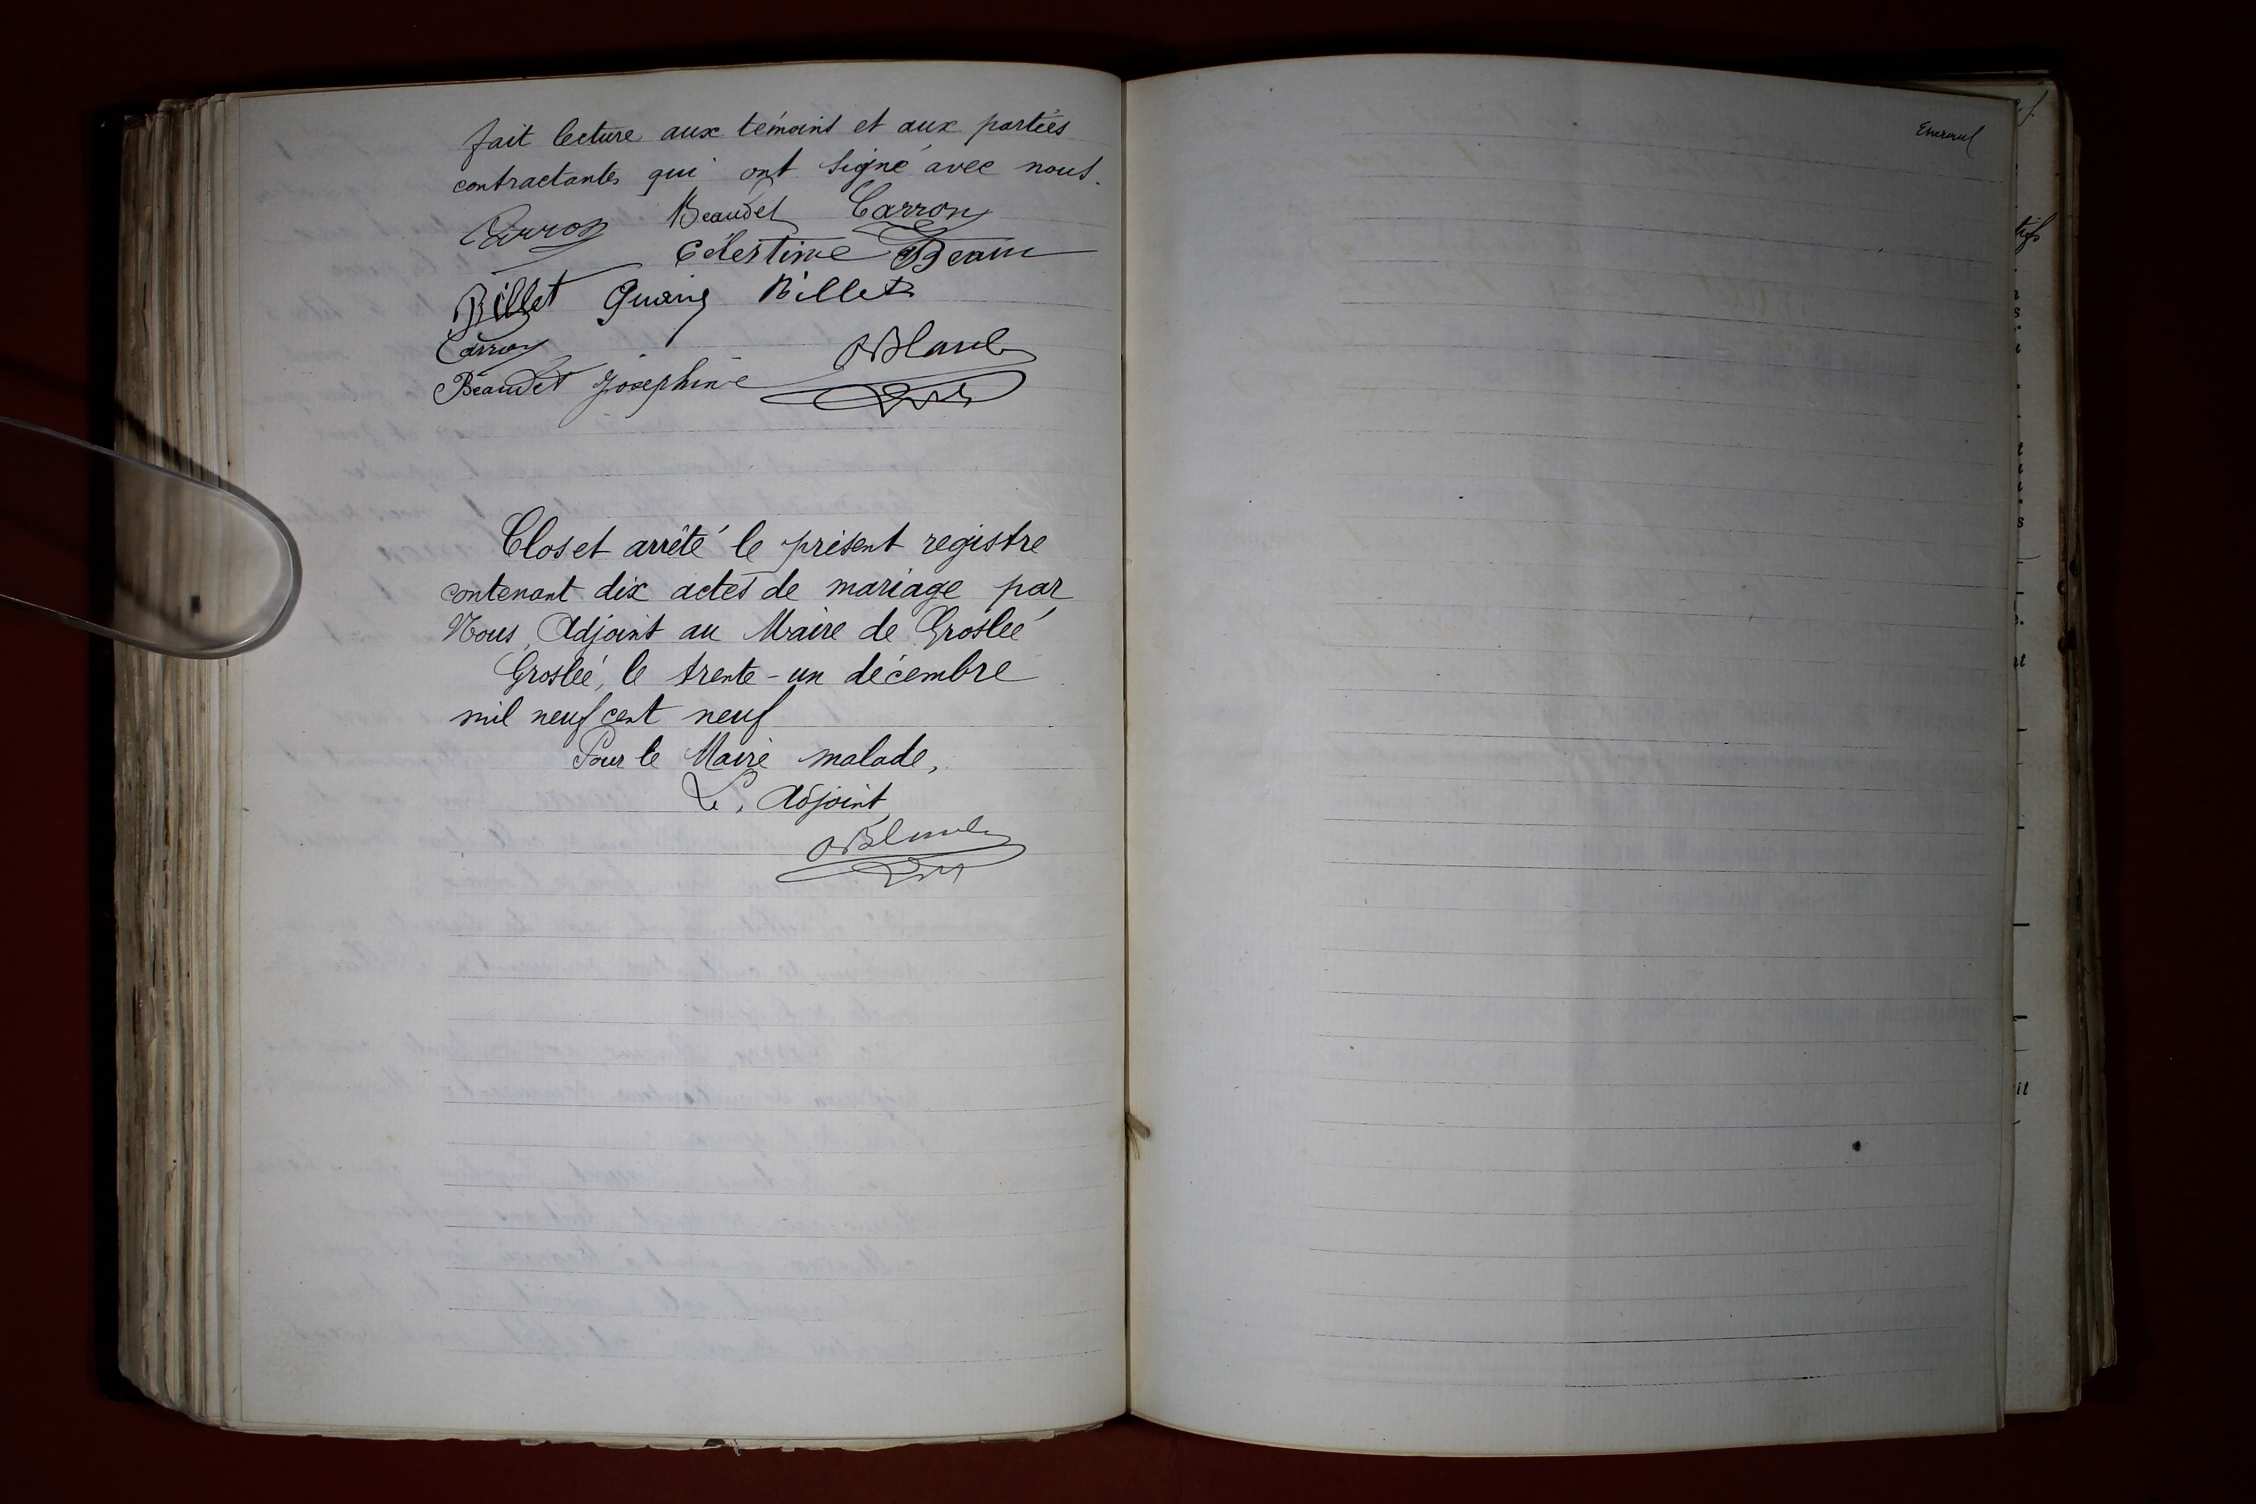 fait lecture aux témoins et aux parties
contractantes qui ont signé avec nous.
Carron Beaudet Carron
Célestine
Billet Billet
Carron
Beaudet Joséphine
Clos et arrêté le présent registre
contenant dix actes de mariage par
Nous, Adjoint au Maire de Groslée
Groslée, le trente-un décembre
mil neuf cent neuf
Pour le Maire malade,
L', Adjoint